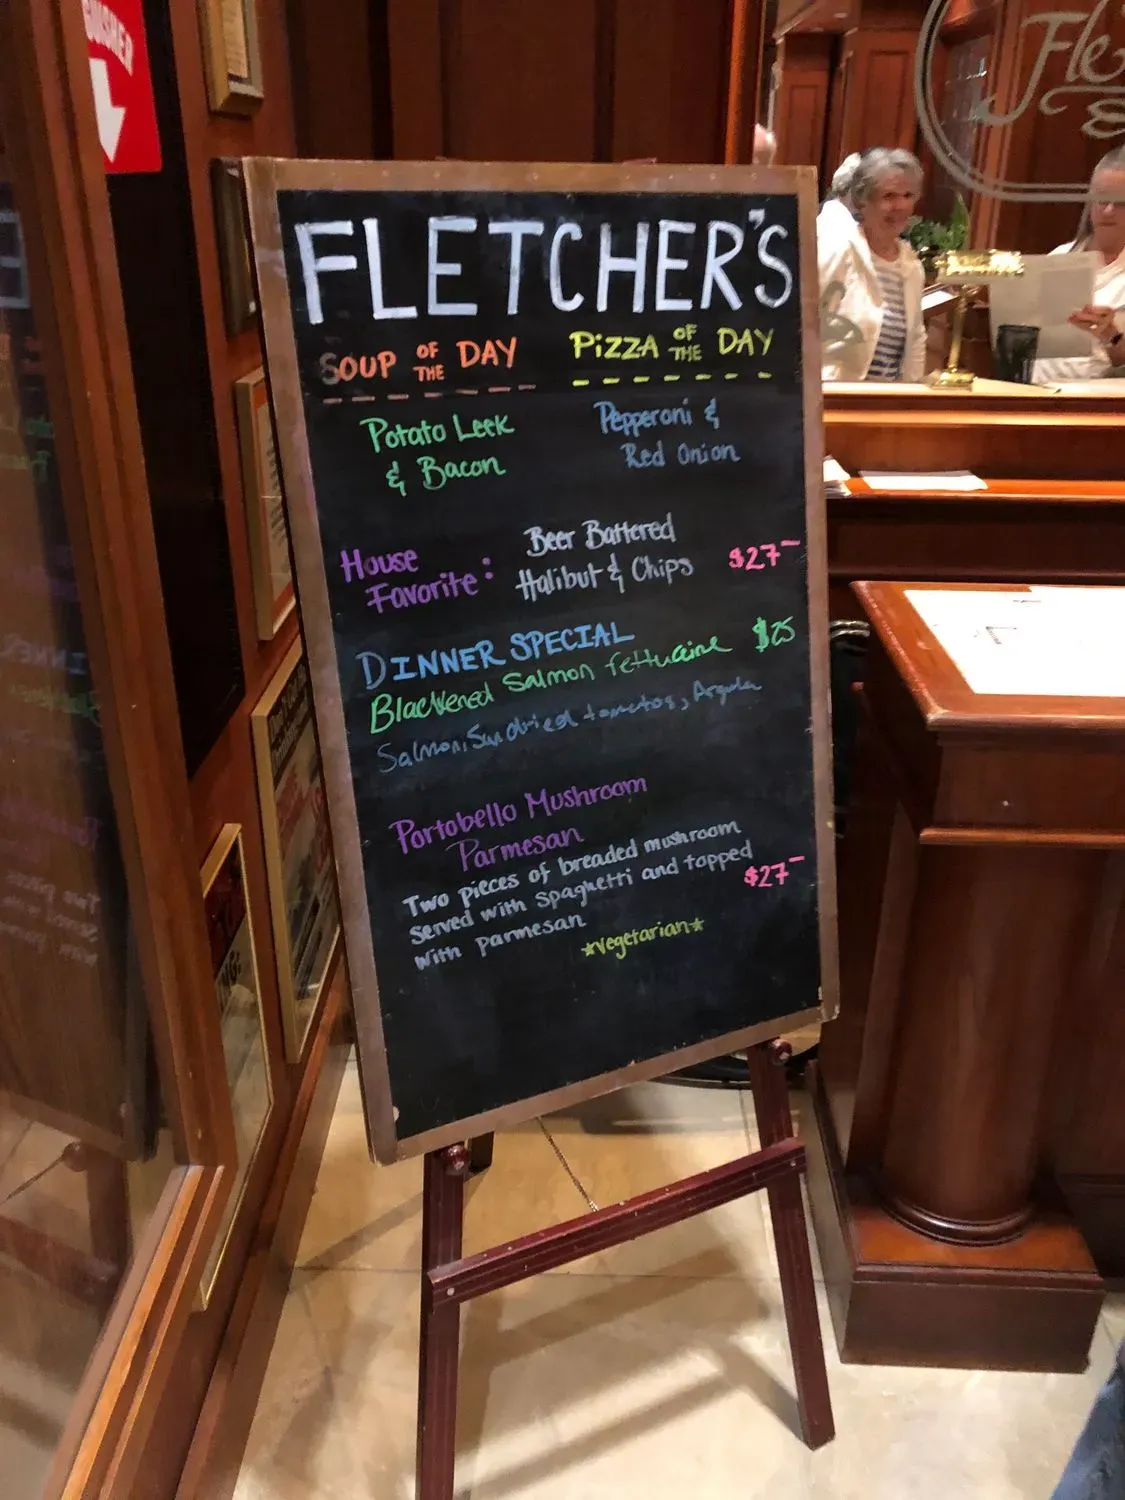 GUISHER
Fle
FLETCHER'S
SOUP OF THE DAY
PIZZA OF THE DAY
Potato Leek
& Bacon
Pepperoni &
Red Onion
House
Favorite:
Beer Battered
Halibut & Chips
$27
DINNER SPECIAL
Blackened Salmon fettucine $25
Salmon, Sun dried tomatos, Argula
Portobello Mushroom
Parmesan
Two pieces of breaded mushroom
served with spaghetti and topped
with parmesan
$27
*vegetarian*